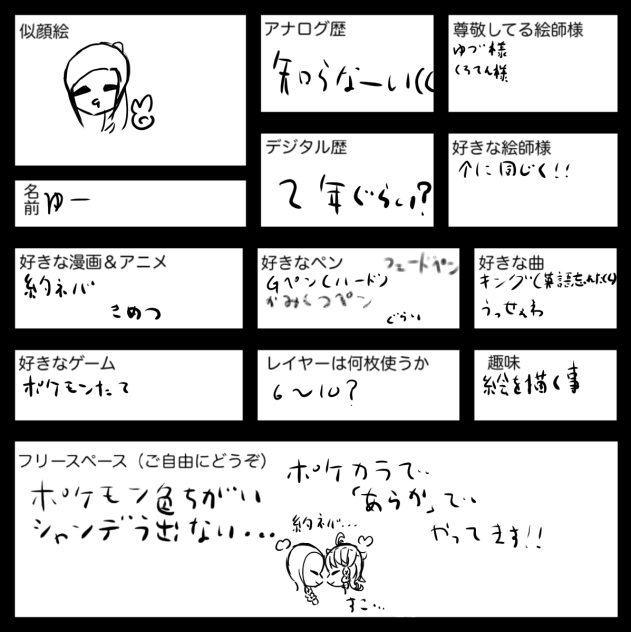 似顔絵
アナログ歴
知らなーい((
尊敬してる絵師様
ゆづ様
くろてん様
名前
ゆー
デジタル歴
2年ぐらい?
好きな絵師様
↑に同じく!!
好きな漫画&アニメ
約ネバ
きめつ
好きなペン
フェードペン
Gペン(ハード)
かみくつペン
ぐらい
好きな曲
キング(英語忘れた((
うっせぇわ
好きなゲーム
ポケモンたて
レイヤーは何枚使うか
6〜10?
趣味
絵を描く事
フリースペース(ご自由にどうぞ)
ポケモン色ちがい
シャンデラ出ない...
ポケカラで..
「あらか」で..
やってます!!
約ネバ...
すこ...